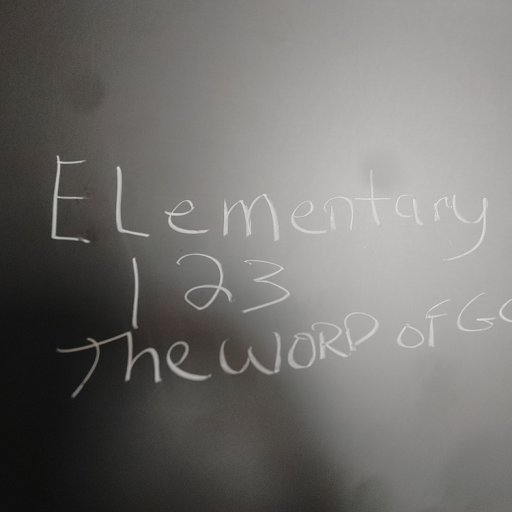 ELementary
123
The WORD OF